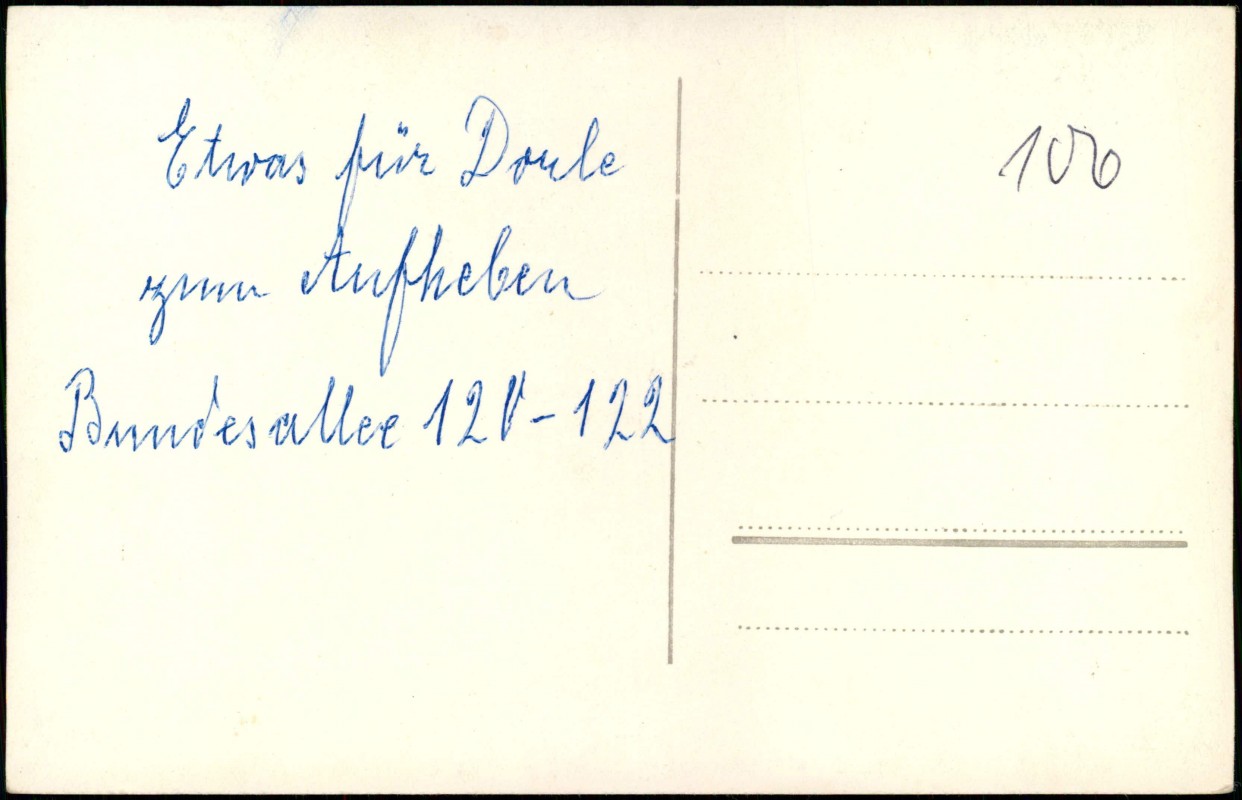 Etwas für Dorle
zum Aufheben
Bundesallee 120-122
100